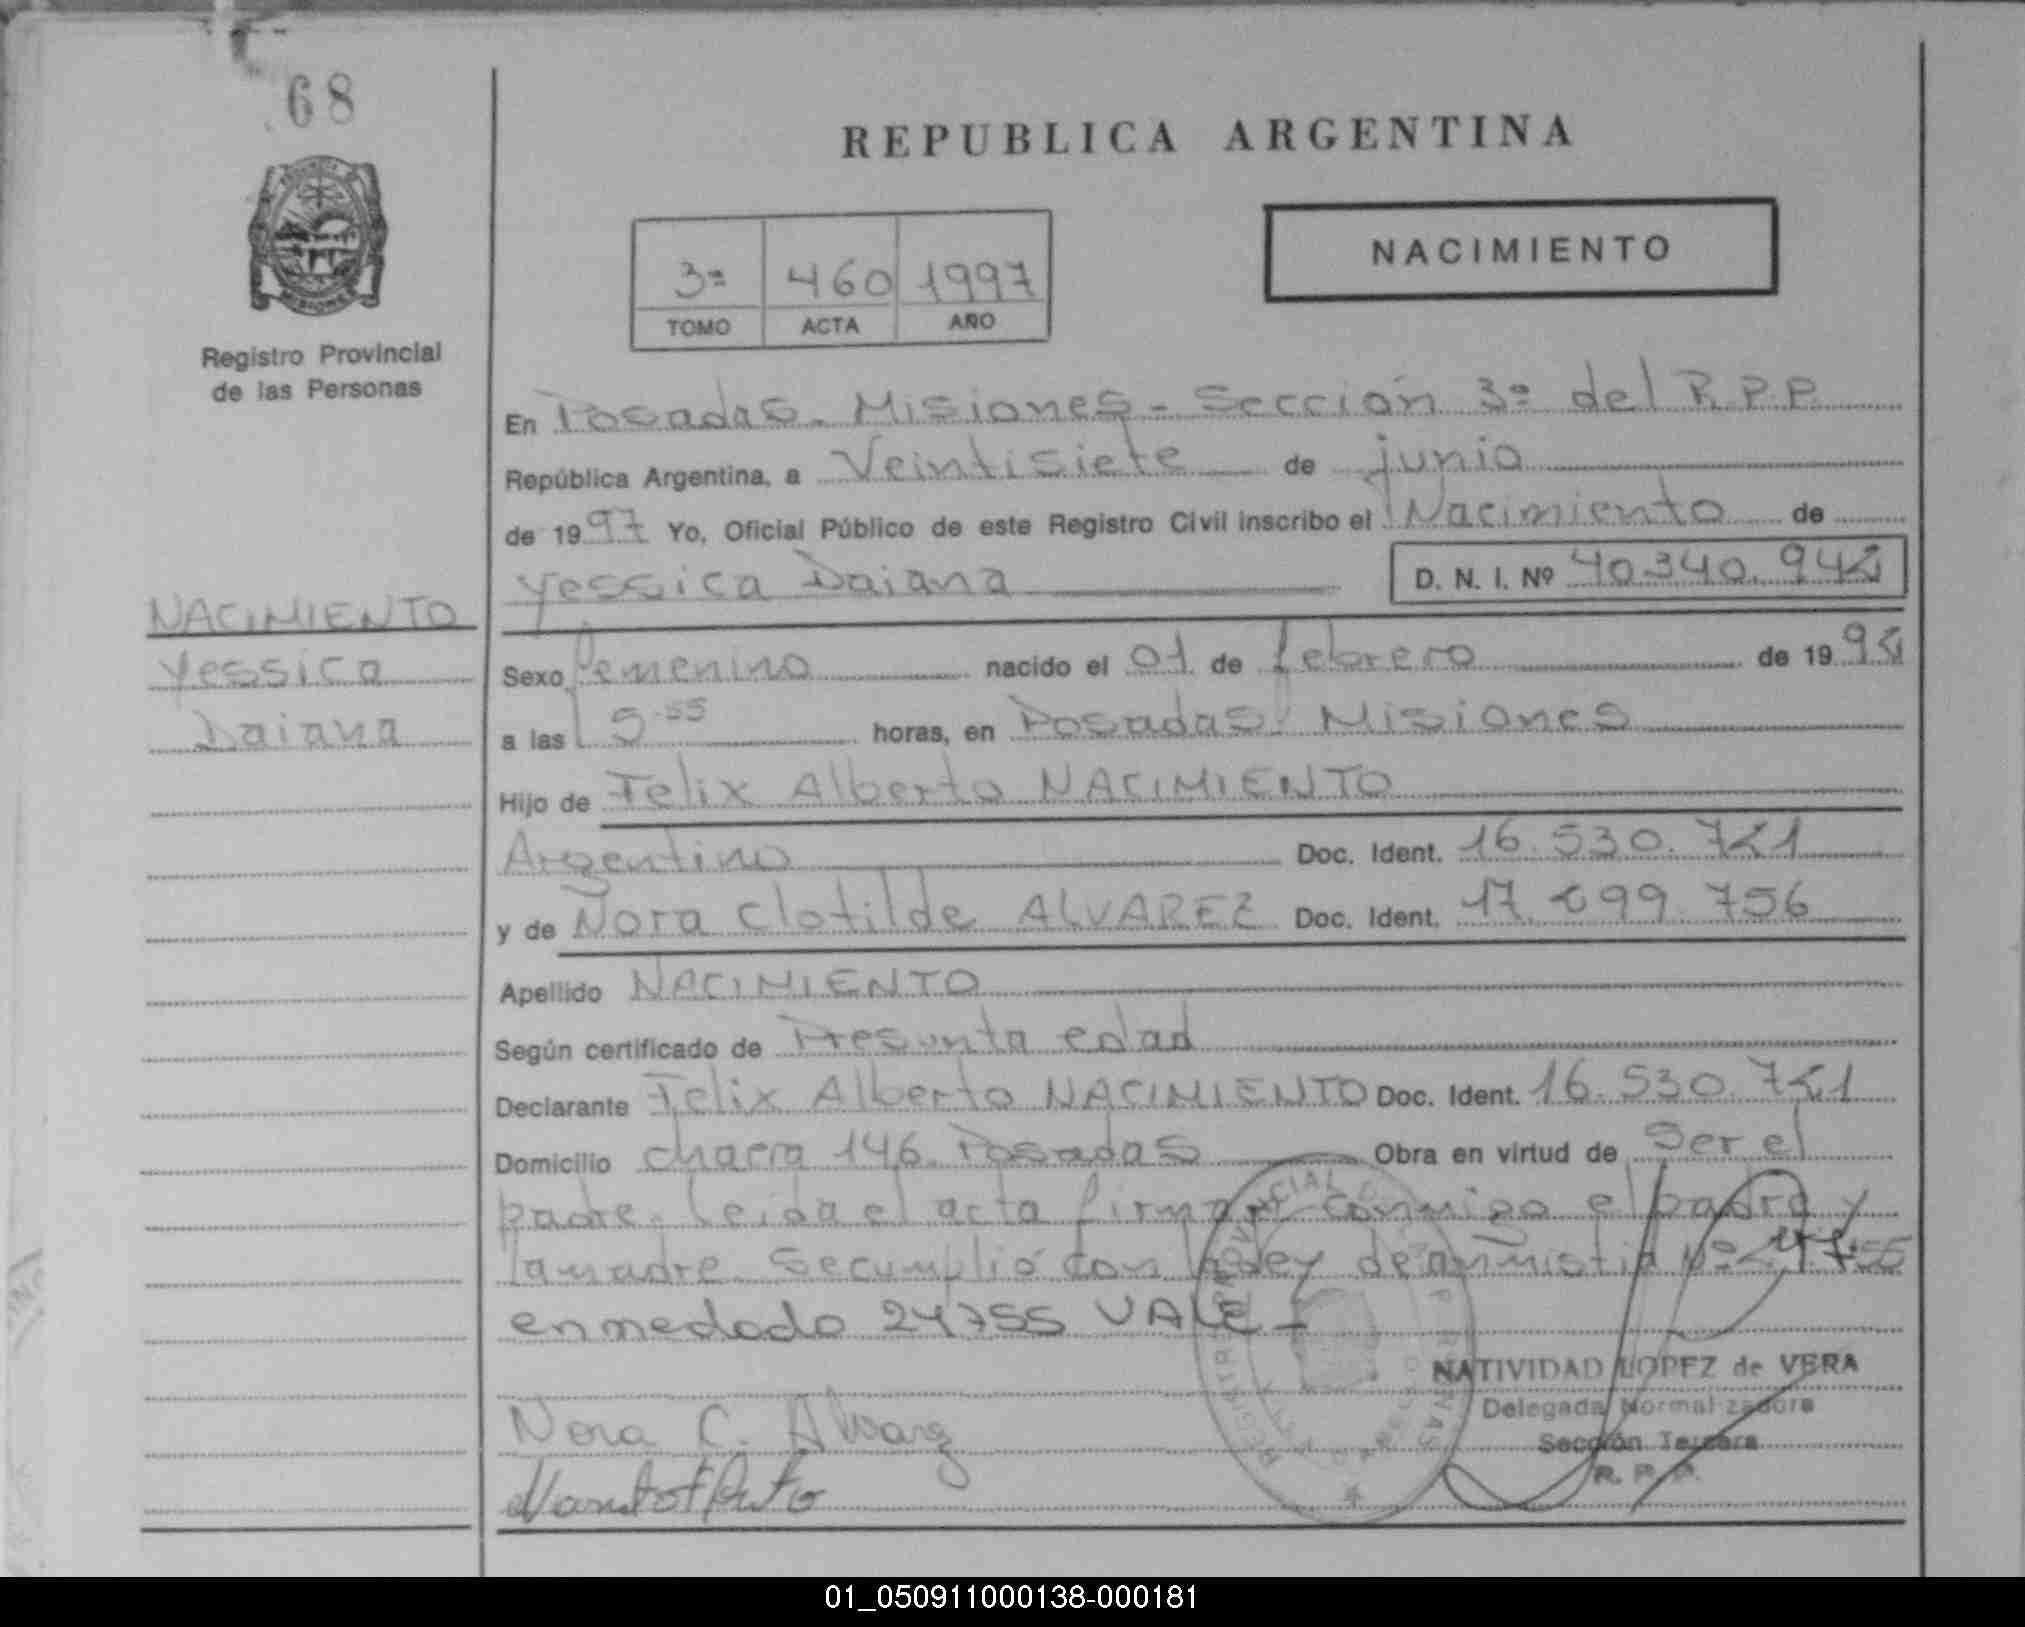 68
REPUBLICA ARGENTINA
NACIMIENTO
3ª 460 1997
TOMO ACTA AÑO
Registro Provincial
de las Personas
En Posadas - Misiones - Sección 3ª del R.P.P.
República Argentina, a Veintisiete de junio
de 1997 Yo, Oficial Público de este Registro Civil inscribo el Nacimiento de
Yessica Daiana D. N. I. Nº 40.340.942
NACIMIENTO
Yessica
Daiana
Sexo femenino nacido el 01 de febrero de 19
a las 5.55 horas, en Posadas Misiones
Hijo de Felix Alberto NACIMIENTO
Argentino Doc. Ident. 16.530.721
y de Nora Clotilde ALVAREZ Doc. Ident. 17.699.756
Apellido NACIMIENTO
Según certificado de Presunta edad
Declarante Felix Alberto NACIMIENTO Doc. Ident. 16.530.721
Domicilio chacra 146. Posadas Obra en virtud de Ser el
padre. Leida el acta firman conmigo el padre y
la madre. Se cumplió con la Ley de amnistia Nº 24755
enmedado 24755 VALE -
NATIVIDAD LOPEZ de VERA
Delegada Normalizadora
Sección Tercera
R. P. P.
Nora C. Alvarez
01_050911000138-000181